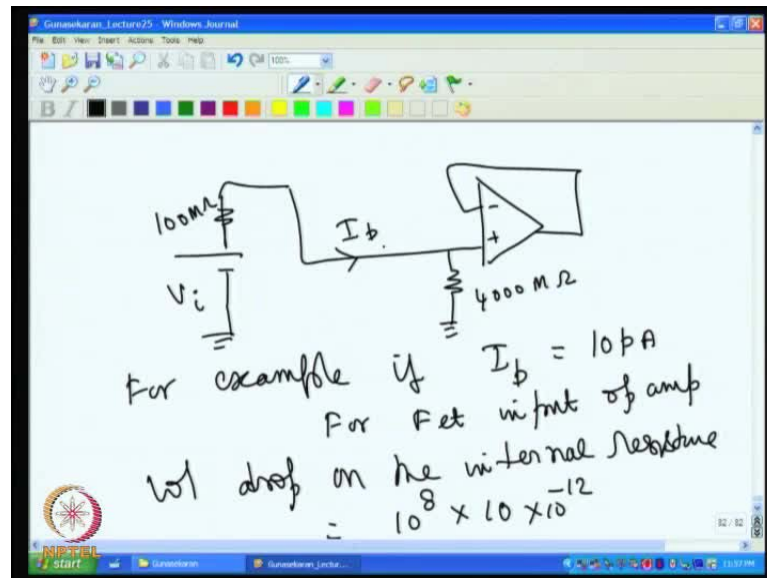 Gunasekaran_Lecture25 - Windows Journal
File Edit View Insert Actions Tools Help
100%
B I
100MΩ
I b
-
+
Vi
4000 M Ω
For example if I b = 10 pA
For Fet input op amp
drop on the internal resistance
= 10^8 × 10 × 10^-12
NPTEL
82 / 82
start
Gunasekaran
Gunasekaran_Lectur...
11:57 PM